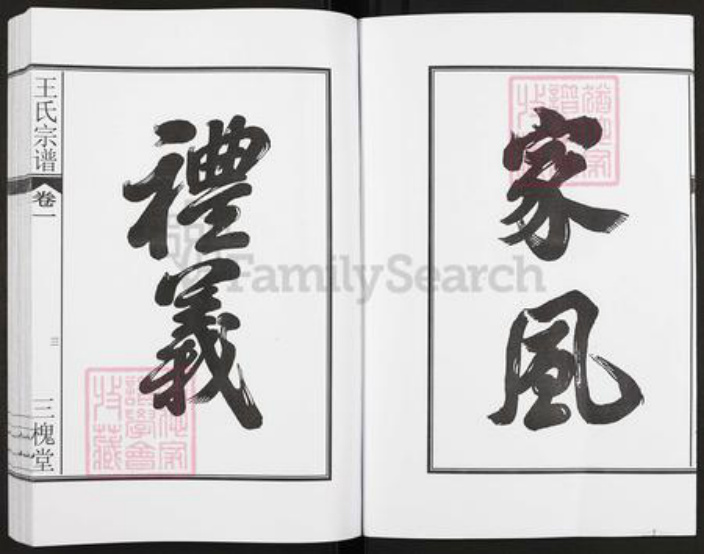 家風
禮義
王氏宗谱
卷一
三
三槐堂
FamilySearch